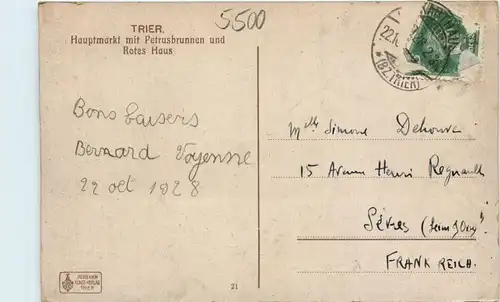 TRIER.
Hauptmarkt mit Petrusbrunnen und
Rotes Haus
5500
22.10
(BZ.TRIER)
Bons baisers
Bernard
22 oct 1928
Mlle Simone Dehoux
15 Avenue Henri Regnault
Sèvres (Seine & Oise)
FRANKREICH.
21